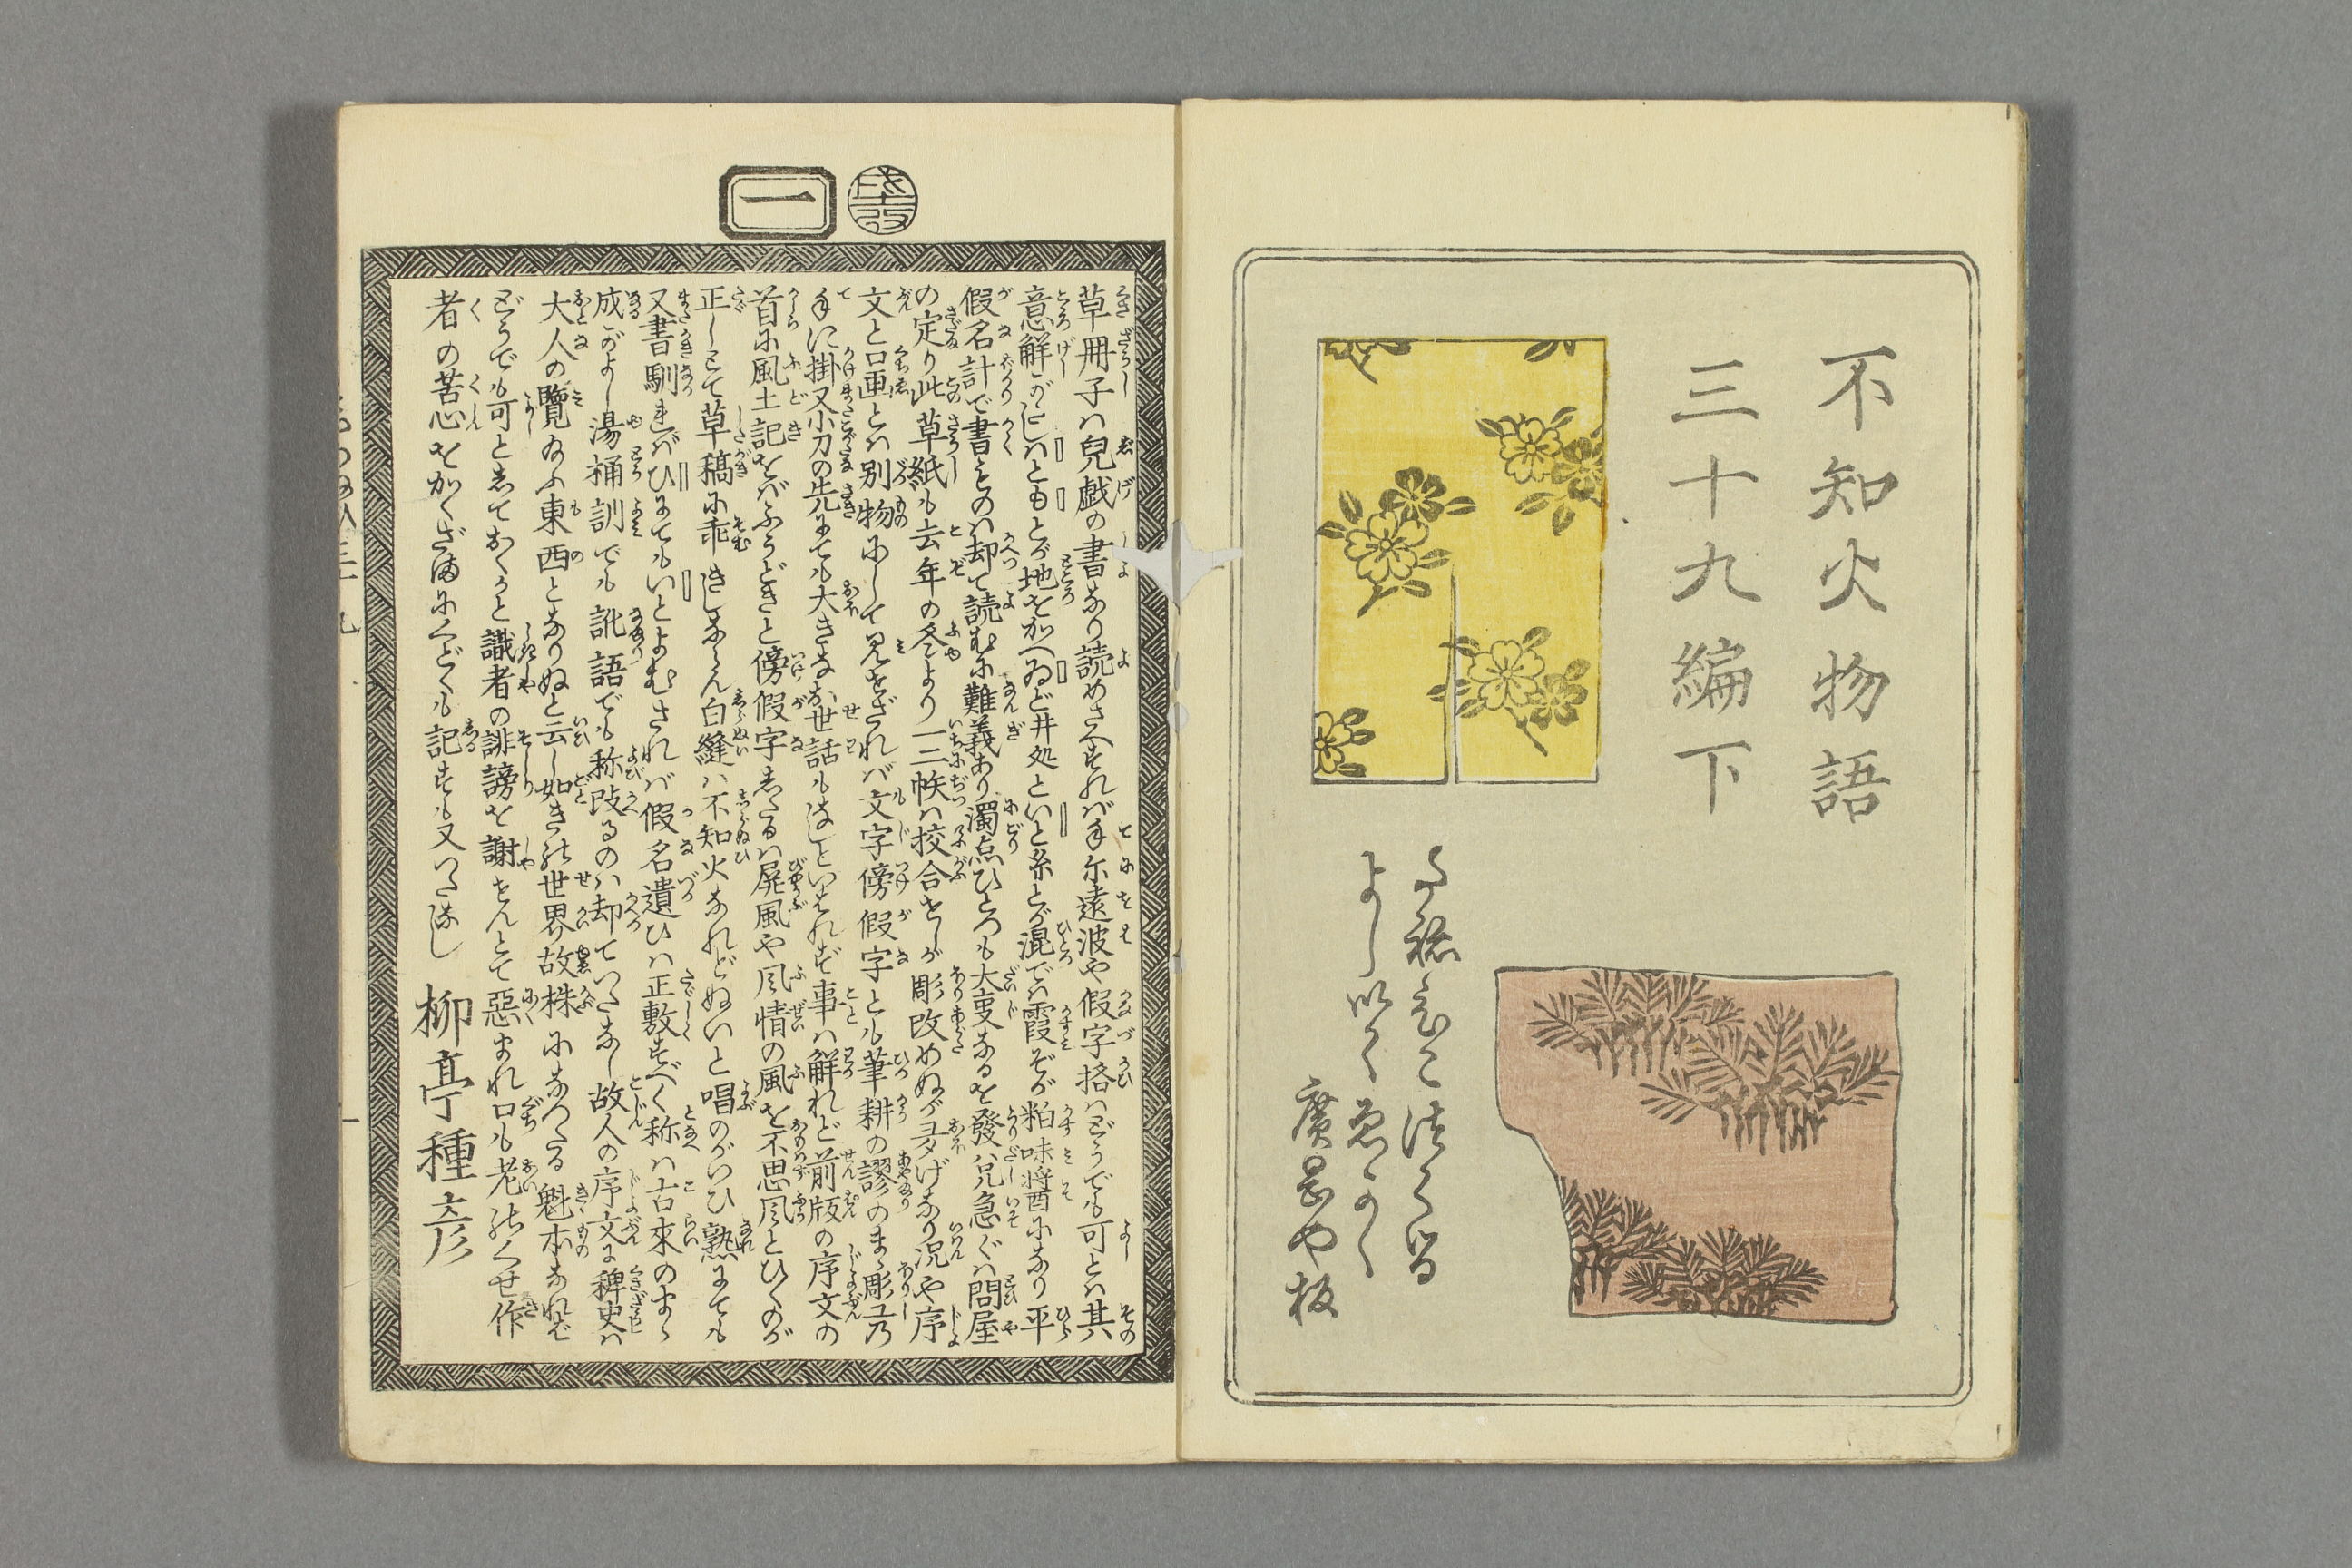 不知火物語
三十九編下
種彦作
よし以く画
廣岡や板
一
草冊子ハ兒戯の書なり読めさへすれバ手尓遠波や假字格ハどうでも可とハ其
意解がたしハともとが地をかへゐど井処といと糸とが混でハ霞ぞが粕味将酉になり平
假名計で書ものハ却て読むに難義あり濁点ひとつも大事なるを發兌急ぐハ問屋
の定り此草紙も去年の冬より一二帙ハ挍合せしが彫改めぬが多げなり況や序
文と口画とハ別物にして見せざれバ文字傍假字とも筆耕の謬のまゝ彫工乃
手に掛又小刀の先にても大きなお世話もなしといはれず事ハ解れど前版の序文の
首に風土記をばふうどきと傍假字したるハ屏風や風情の風を不思風とひくのが
正しとて草稿に乖きしならん白縫ハ不知火なれどぬいと唱のがいひ熟にても
又書馴ればひにてもいとよむされバ假名遣ひハ正敷すべく称ハ古来のまゝ
成がよし湯桶訓でも訛語でも称改るのハ却ていたなし故人の序文に稗史ハ
大人の覽給ふ東西となりぬと云し如き此世界故株になつたる魁本なれバ
どうでも可としておかうと識者の誹謗を謝せんとて惡まれ口も老のくせ作
者の苦心をかくざまにくどくも記すも又いたなし
柳亭種彦